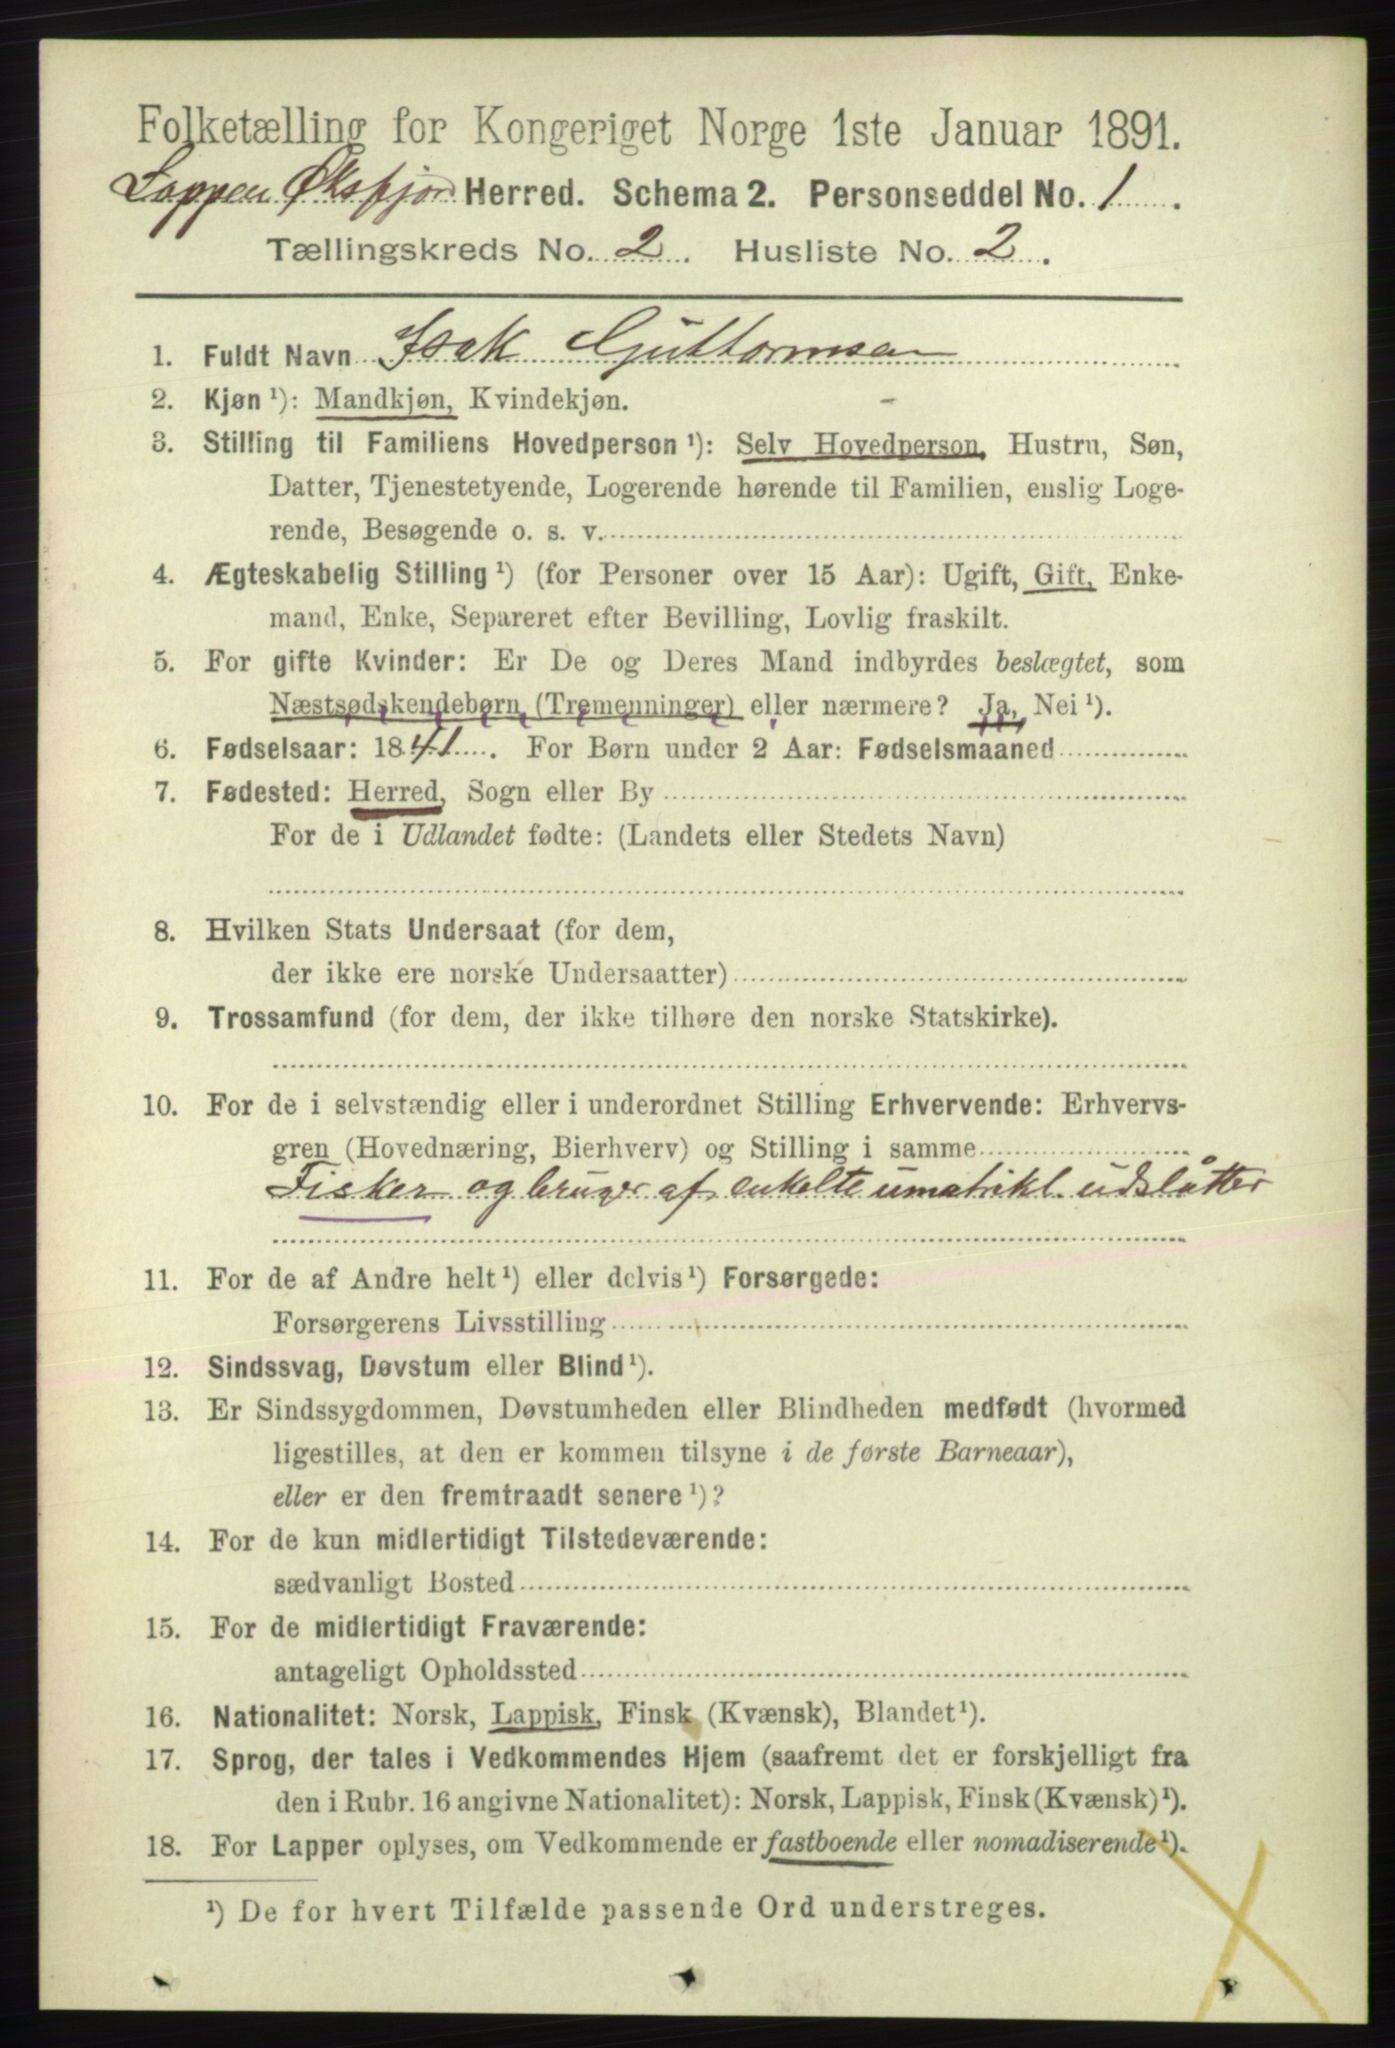 Folketælling for Kongeriget Norge 1ste Januar 1891.
Loppen Øksfjord Herred. Schema 2. Personseddel No. 1.
Tællingskreds No. 2. Husliste No. 2.
1. Fuldt Navn Isak Guttormsen
2. Kjøn ¹): Mandkjøn, Kvindekjøn.
3. Stilling til Familiens Hovedperson ¹): Selv Hovedperson, Hustru, Søn,
Datter, Tjenestetyende, Logerende hørende til Familien, enslig Loge-
rende, Besøgende o. s. v.
4. Ægteskabelig Stilling ¹) (for Personer over 15 Aar): Ugift, Gift, Enke-
mand, Enke, Separeret efter Bevilling, Lovlig fraskilt.
5. For gifte Kvinder: Er De og Deres Mand indbyrdes beslægtet, som
Næstsødskendebørn (Tremenninger) eller nærmere? Ja, Nei ¹).
6. Fødselsaar: 1841. For Børn under 2 Aar: Fødselsmaaned
7. Fødested: Herred, Sogn eller By
For de i Udlandet fødte: (Landets eller Stedets Navn)
8. Hvilken Stats Undersaat (for dem,
der ikke ere norske Undersaatter)
9. Trossamfund (for dem, der ikke tilhøre den norske Statskirke).
10. For de i selvstændig eller i underordnet Stilling Erhvervende: Erhvervs-
gren (Hovednæring, Bierhverv) og Stilling i samme
Fisker og bruger af enkelte umatrikl. udslåtter
11. For de af Andre helt ¹) eller delvis ¹) Forsørgede:
Forsørgerens Livsstilling
12. Sindssvag, Døvstum eller Blind ¹).
13. Er Sindssygdommen, Døvstumheden eller Blindheden medfødt (hvormed
ligestilles, at den er kommen tilsyne i de første Barneaar),
eller er den fremtraadt senere ¹)?
14. For de kun midlertidigt Tilstedeværende:
sædvanligt Bosted
15. For de midlertidigt Fraværende:
antageligt Opholdssted
16. Nationalitet: Norsk, Lappisk, Finsk (Kvænsk), Blandet ¹).
17. Sprog, der tales i Vedkommendes Hjem (saafremt det er forskjelligt fra
den i Rubr. 16 angivne Nationalitet): Norsk, Lappisk, Finsk (Kvænsk) ¹).
18. For Lapper oplyses, om Vedkommende er fastboende eller nomadiserende ¹).
¹) De for hvert Tilfælde passende Ord understreges.